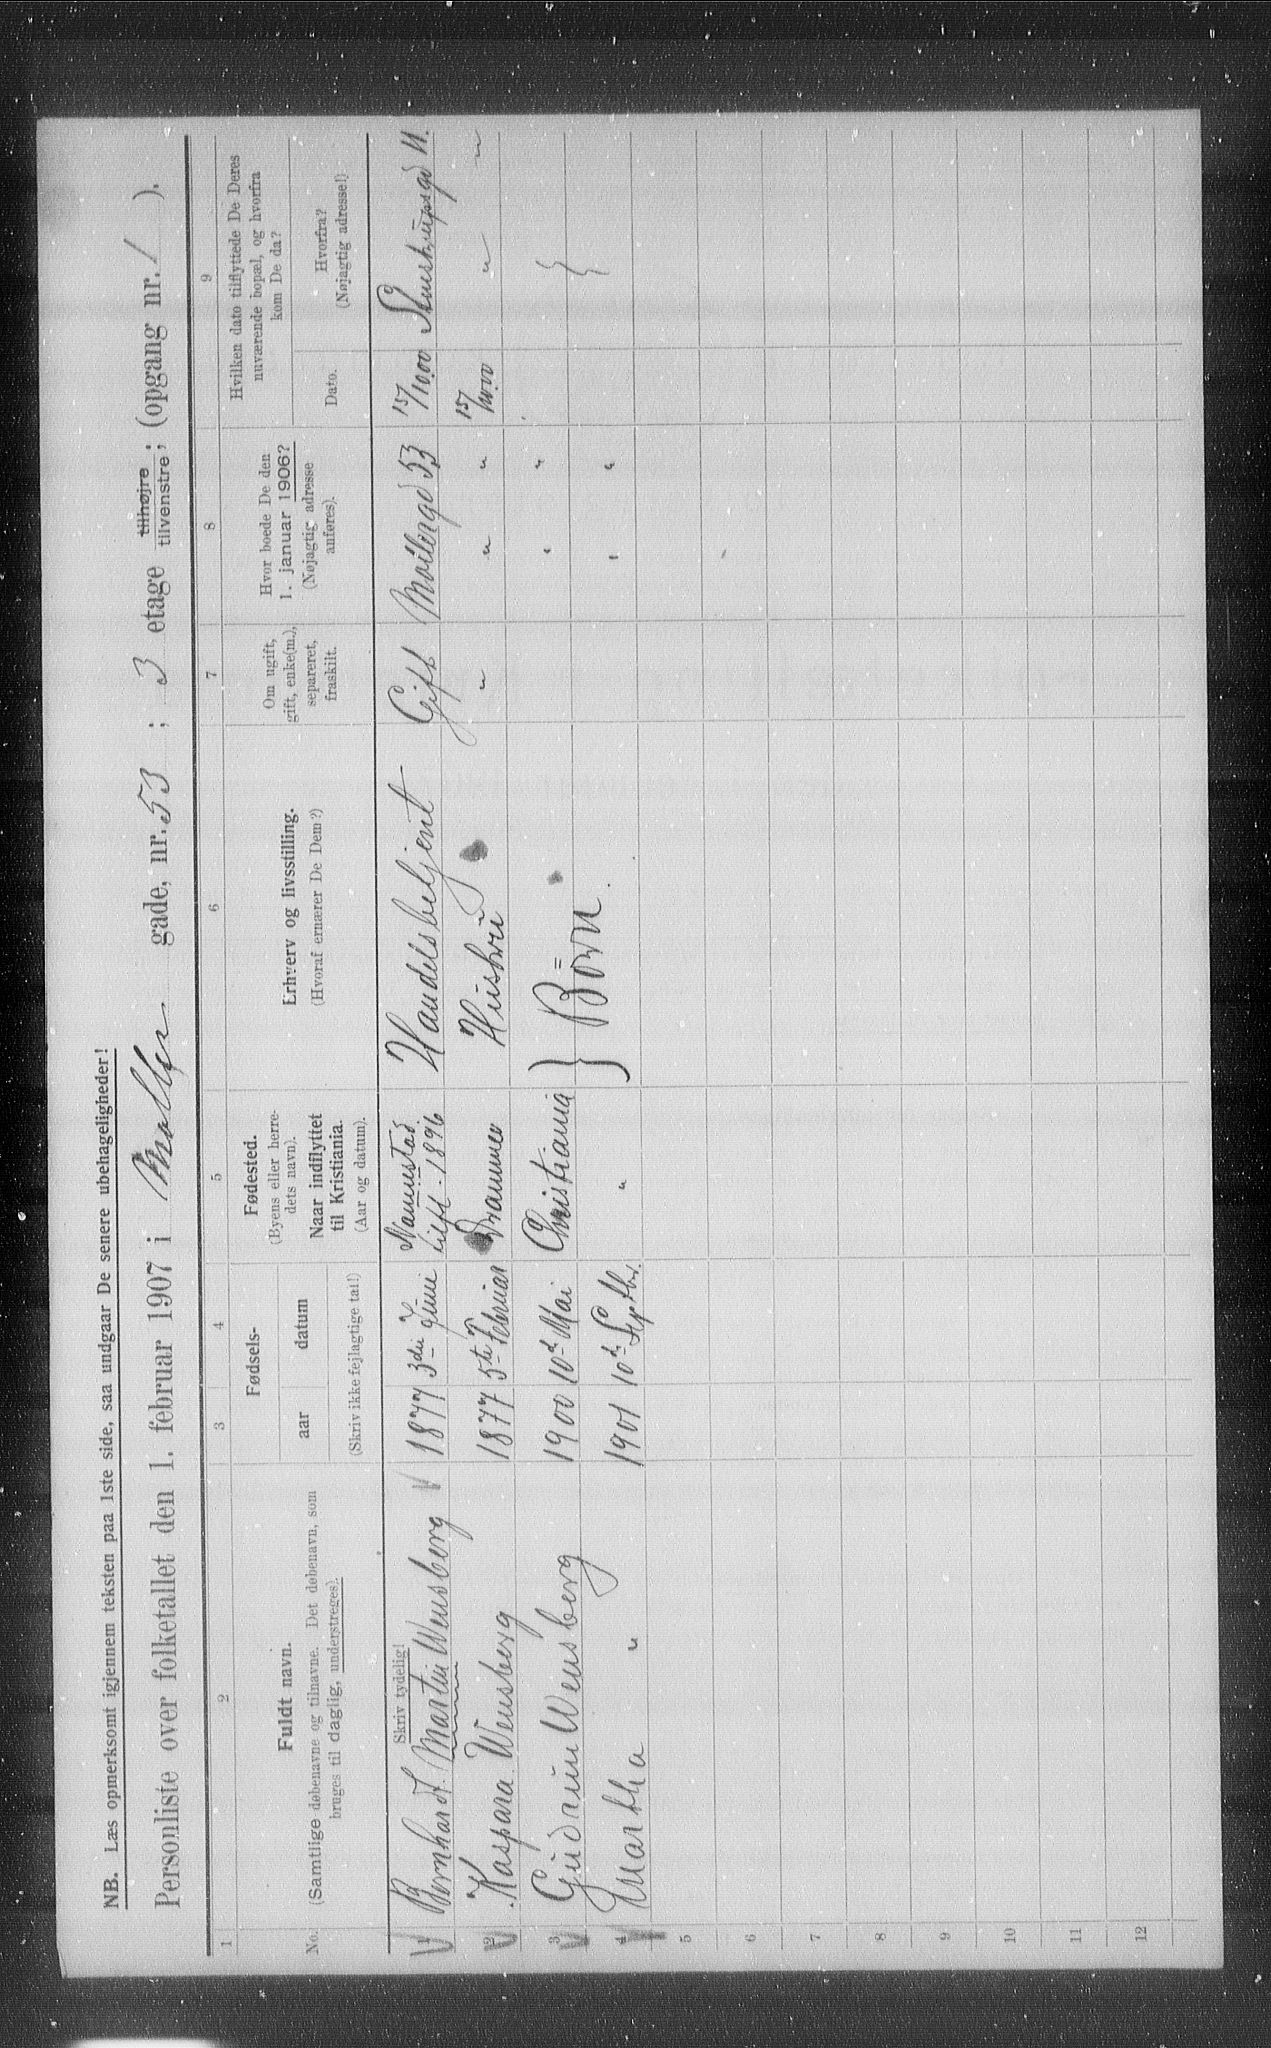 NB. Læs opmerksomt igjennem teksten paa 1ste side, saa undgaar De senere ubehageligheder!
Personliste over folketallet den 1. februar 1907 i Møller gade, nr. 53 ; 3 etage tilhøjre tilvenstre ; (opgang nr. / ).
1 2 3 4 5 6 7 8 9
No.
Fuldt navn.
(Samtlige døbenavne og tilnavne. Det døbenavn, som
bruges til daglig, understreges).
Fødsels-
aar datum
(Skriv ikke fejlagtige tal!)
Fødested.
(Byens eller herre-
dets navn).
Naar indflyttet
til Kristiania.
(Aar og datum).
Erhverv og livsstilling.
(Hvoraf ernærer De Dem?)
Om ugift,
gift, enke(m.),
separeret,
fraskilt.
Hvor boede De den
1. januar 1906?
(Nøjagtig adresse
anføres).
Hvilken dato tilflyttede De Deres
nuværende bopæl, og hvorfra
kom De da?
Dato.
Hvorfra?
(Nøjagtig adresse!)
Skriv tydelig!
1 Bernhardt Martin Wensberg 1877 3die Juni Nannestad 1896 Handelsbetjent Gift Møllergd 53 15/10.00
2 Kaspara Wensberg 1877 5te Februar Drammen Hustru " " " 15/10.00 " "
3 Gudrun Wensberg 1900 10de Mai Christiania } Børn " "
4 Martha " 1901 10de Septbr. " " "
5
6
7
8
9
10
11
12